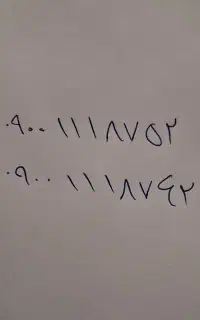 ۰۹۰۰۱۱۱۸۷۵۲
۰۹۰۰۱۱۱۸۷۴۲